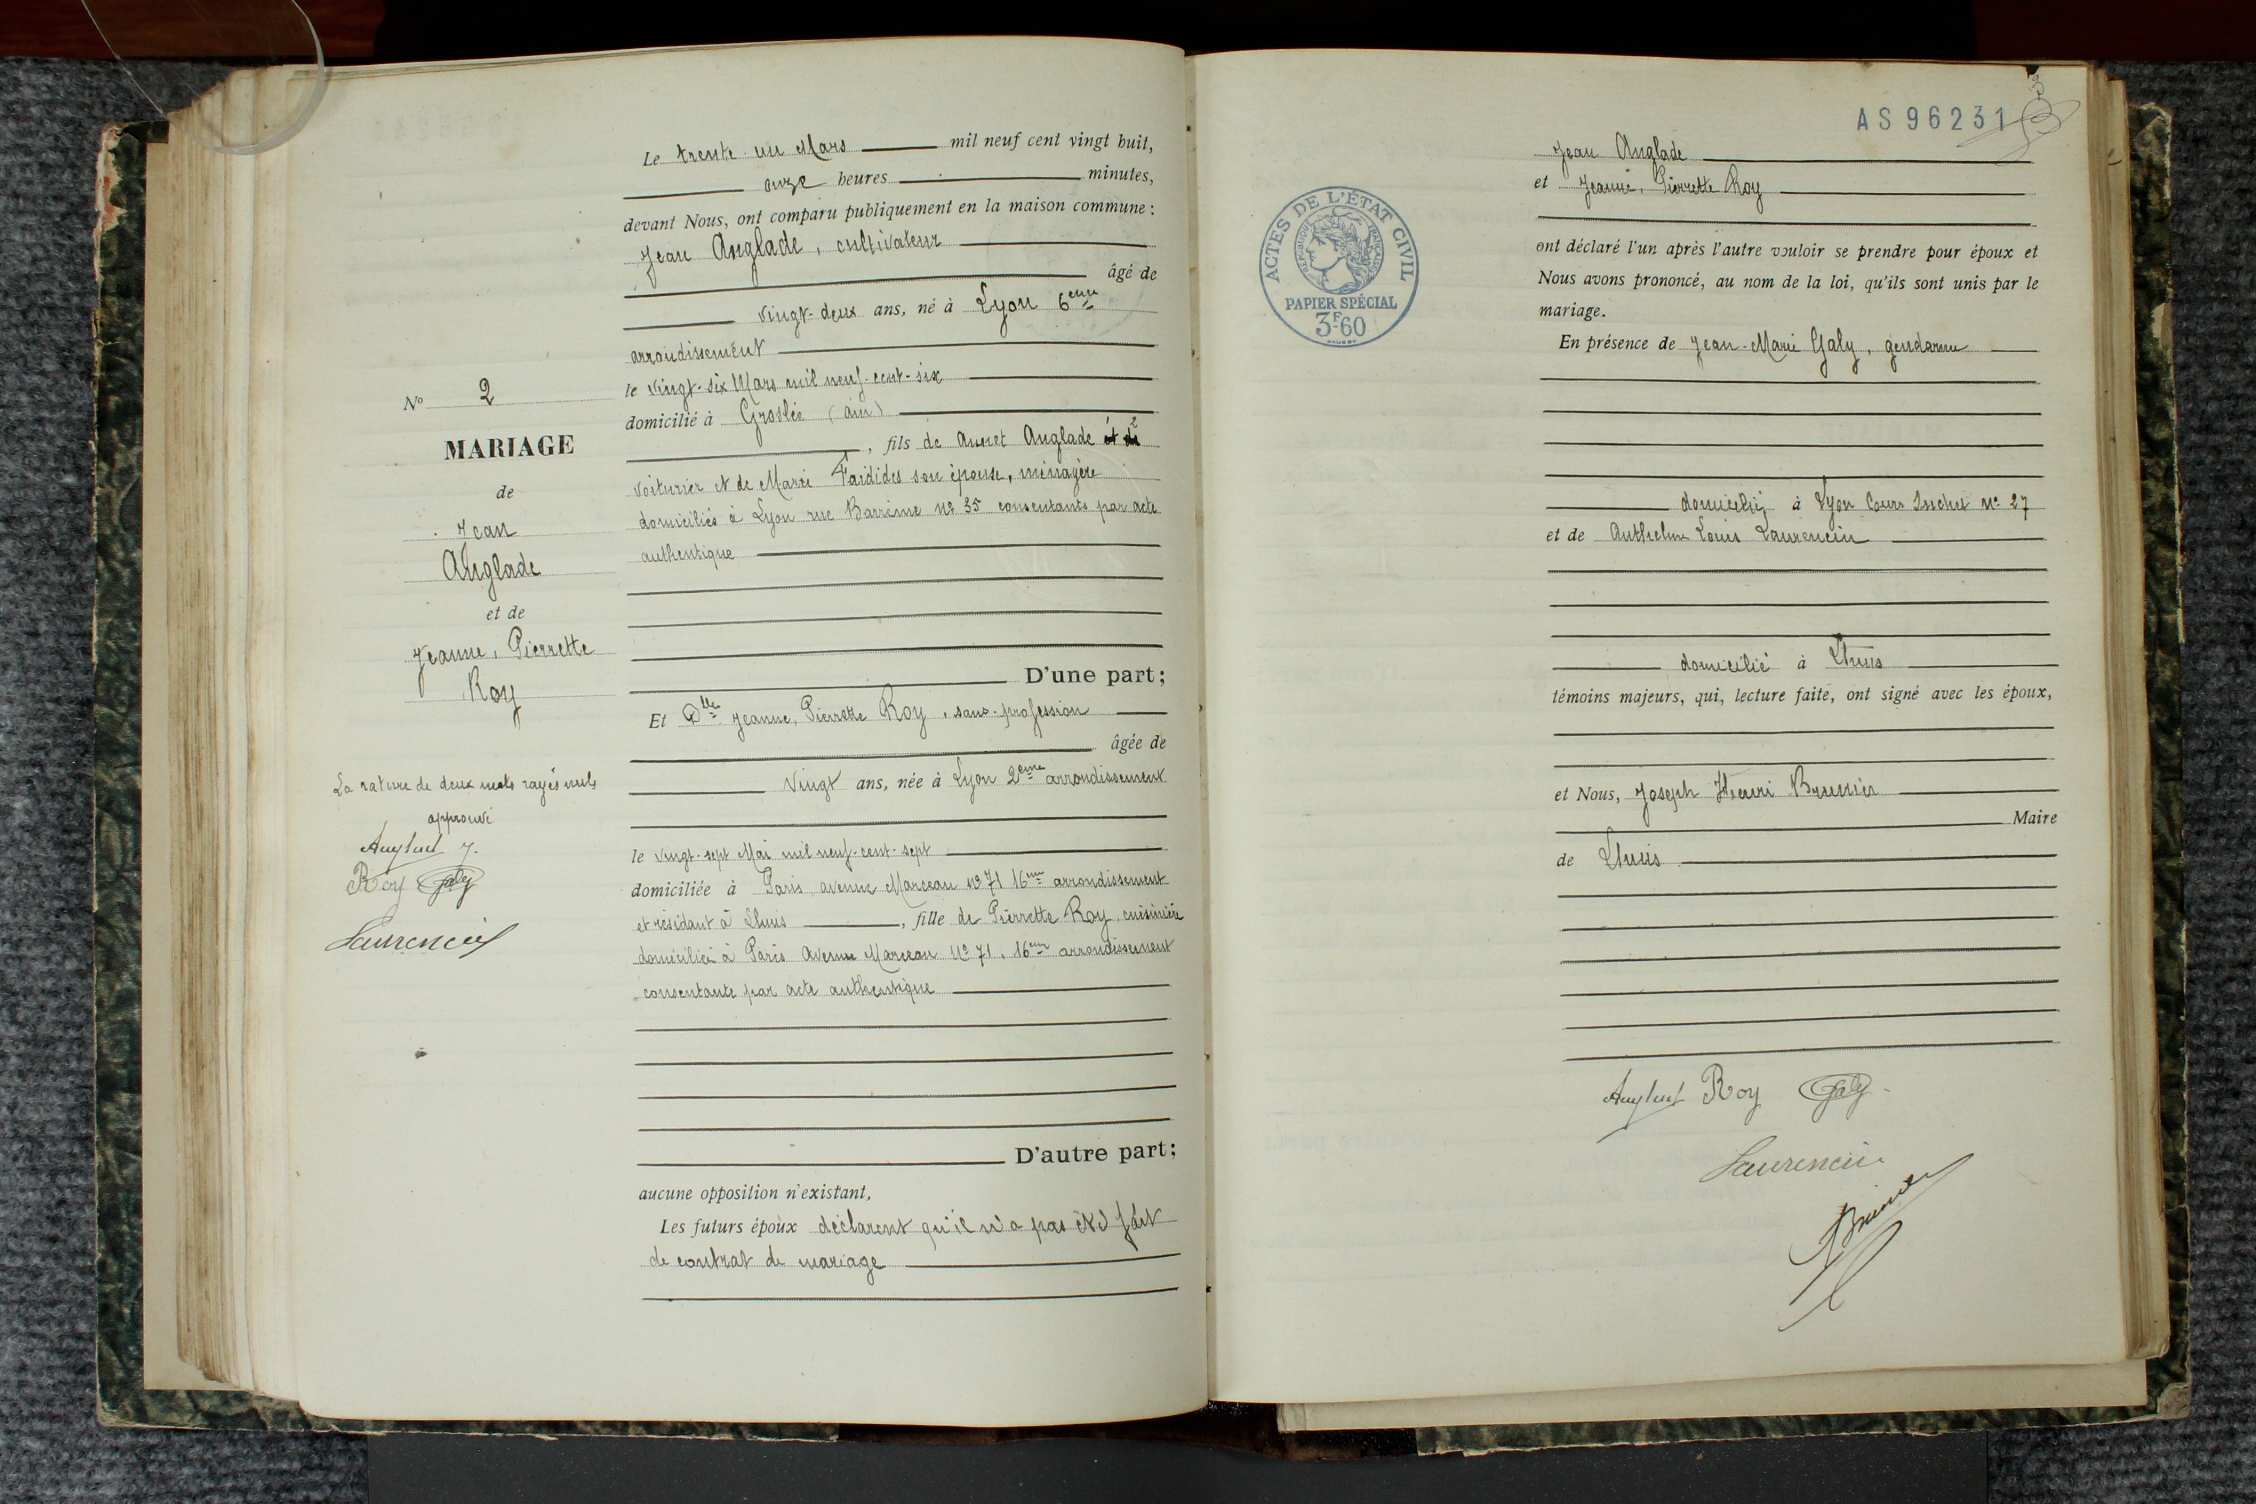 Le trente un Mars mil neuf cent vingt huit,
onze heures minutes,
devant Nous, ont comparu publiquement en la maison commune :
Jean Anglade, cultivateur
âgé de
vingt-deux ans, né à Lyon 6eme
arrondissement
le vingt-six Mars mil neuf-cent-six
domicilié à Groslée (ain)
, fils de Annet Anglade et de
voiturier et de Marie Faidides son épouse, ménagère
domiciliés à Lyon rue Barrème no 35 consentants par acte
authentique
D'une part;
Et Dlle Jeanne, Pierrette Roy, sans-profession
âgée de
Vingt ans, née à Lyon 2eme arrondissement
le vingt-sept Mai mil neuf-cent-sept
domiciliée à Paris, avenue Marceau no 71 16me arrondissement
et résidant à Lhuis, fille de Pierrette Roy, cuisinière
domicilié à Paris Avenue Marceau No 71, 16eme arrondissement
consentante par acte authentique
D'autre part;
aucune opposition n'existant,
Les futurs époux déclarent qu'il n'a pas été fait
de contrat de mariage
No 2
MARIAGE
de
Jean
Anglade
et de
Jeanne, Pierrette
Roy
La rature de deux mots rayés nuls
approuvé
J.
Roy Galy
Laurencin
AS96231
Jean Anglade
et Jeanne, Pierrette Roy
ont déclaré l'un après l'autre vouloir se prendre pour époux et
Nous avons prononcé, au nom de la loi, qu'ils sont unis par le
mariage.
En présence de Jean-Marie Galy, gendarme
domicilié à Lyon Cours Suchet No 27
et de Anthelme Louis Laurencin
domicilié à Lhuis
témoins majeurs, qui, lecture faite, ont signé avec les époux,
et Nous, Joseph Henri Brunier
Maire
de Lhuis
Roy Galy
Laurencin
Brunier
ACTES DE L'ÉTAT CIVIL
RÉPUBLIQUE FRANÇAISE
PAPIER SPÉCIAL
3F60